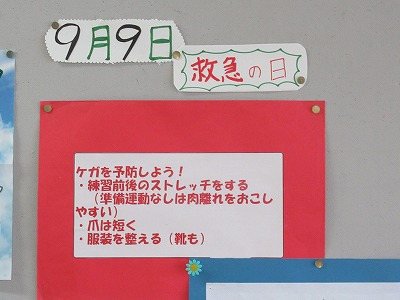 9月9日
救急の日
ケガを予防しよう！
・練習前後のストレッチをする
（準備運動なしは肉離れをおこし
やすい）
・爪は短く
・服装を整える（靴も）